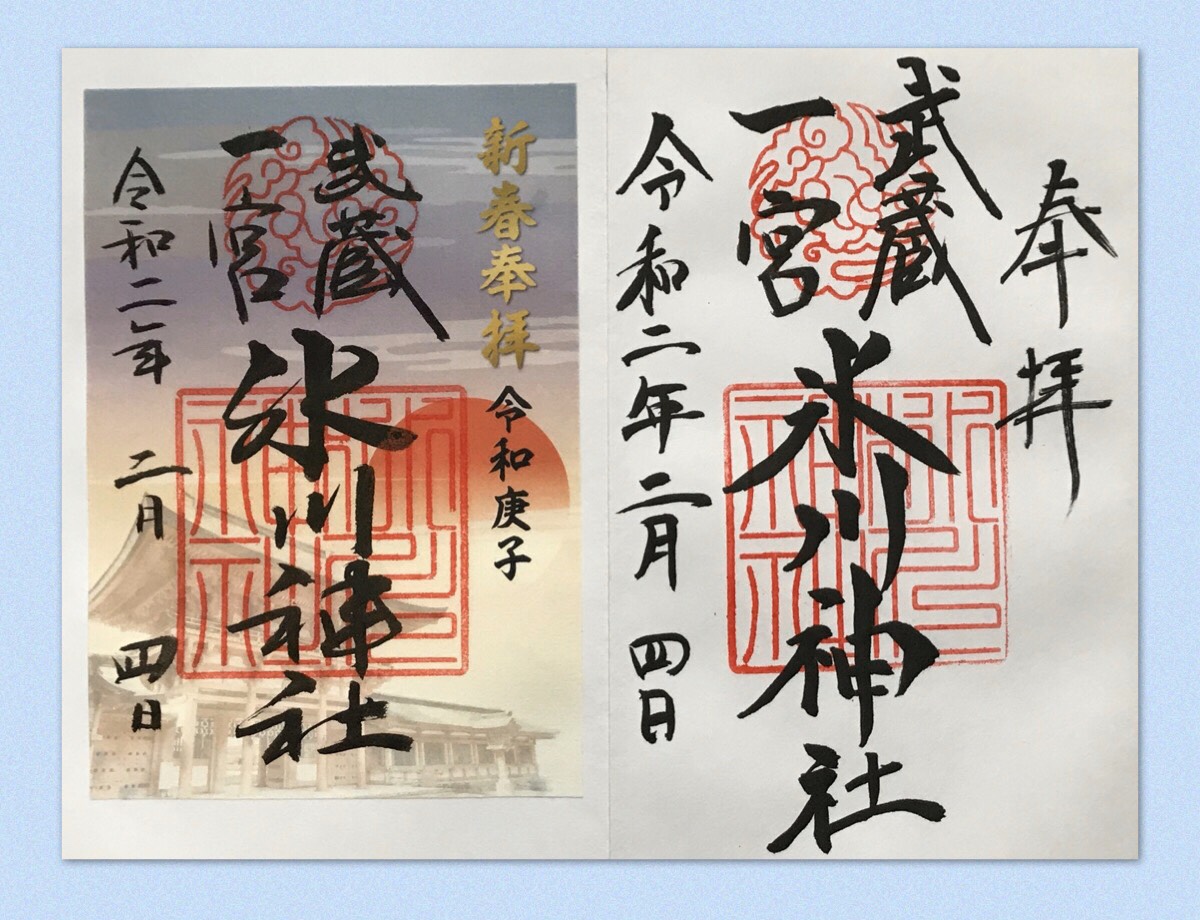 奉拝
武蔵
一宮
氷川神社
令和二年二月四日
新春奉拝
令和庚子
武蔵
一宮
氷川神社
令和二年 二月 四日